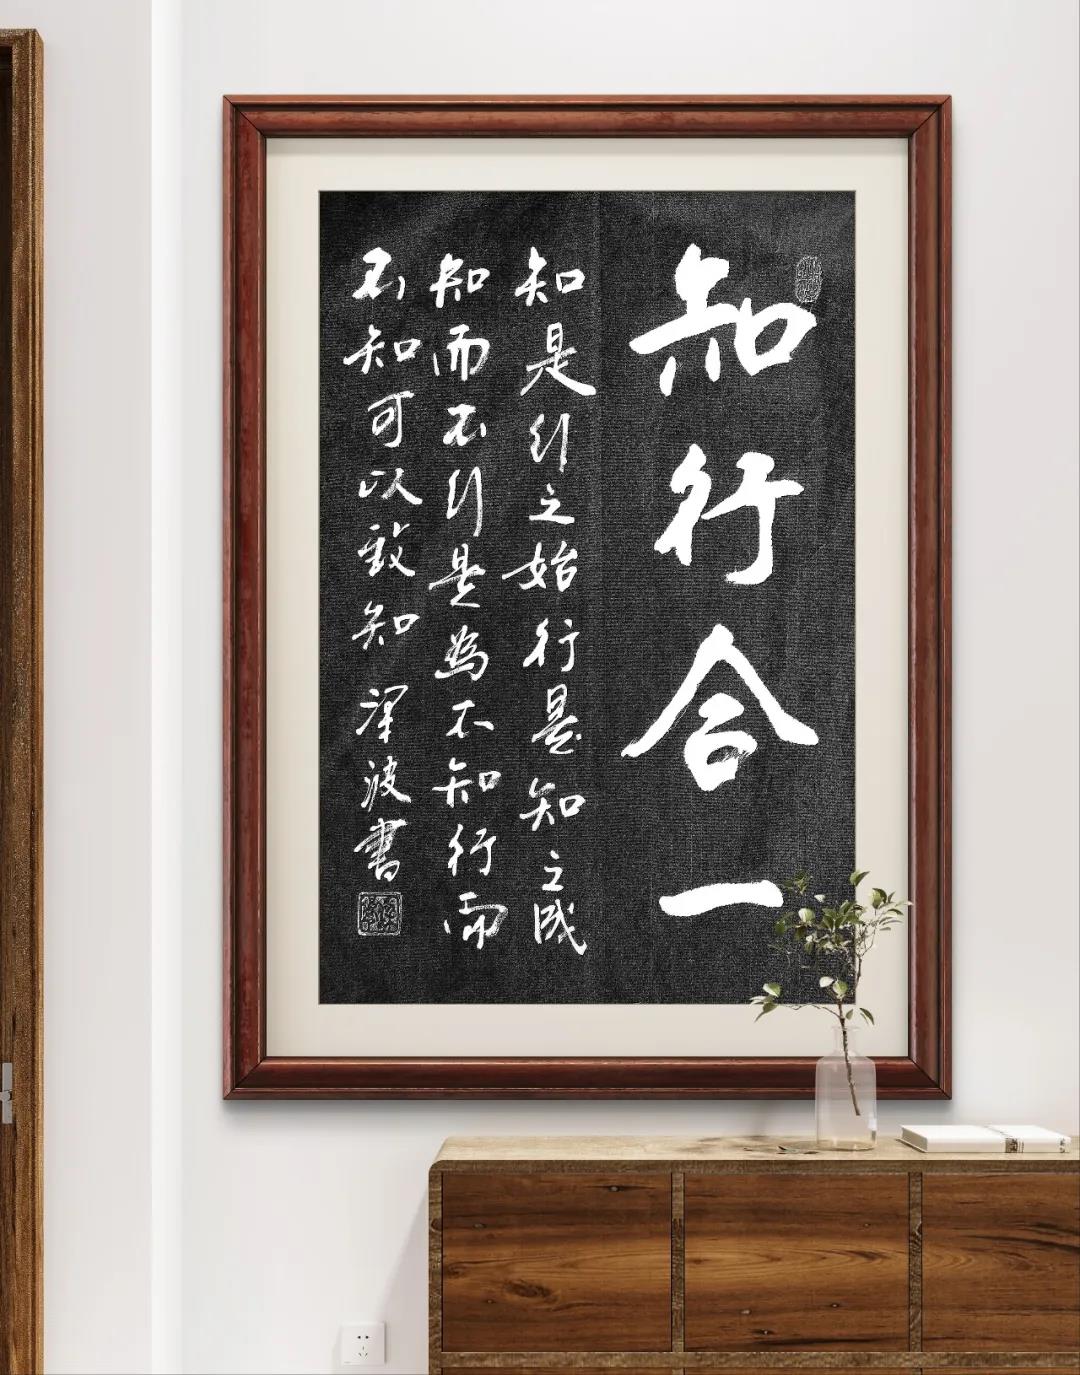 知行合一
知是行之始行是知之成
知而不行是為不知行而
不知可以致知 波書